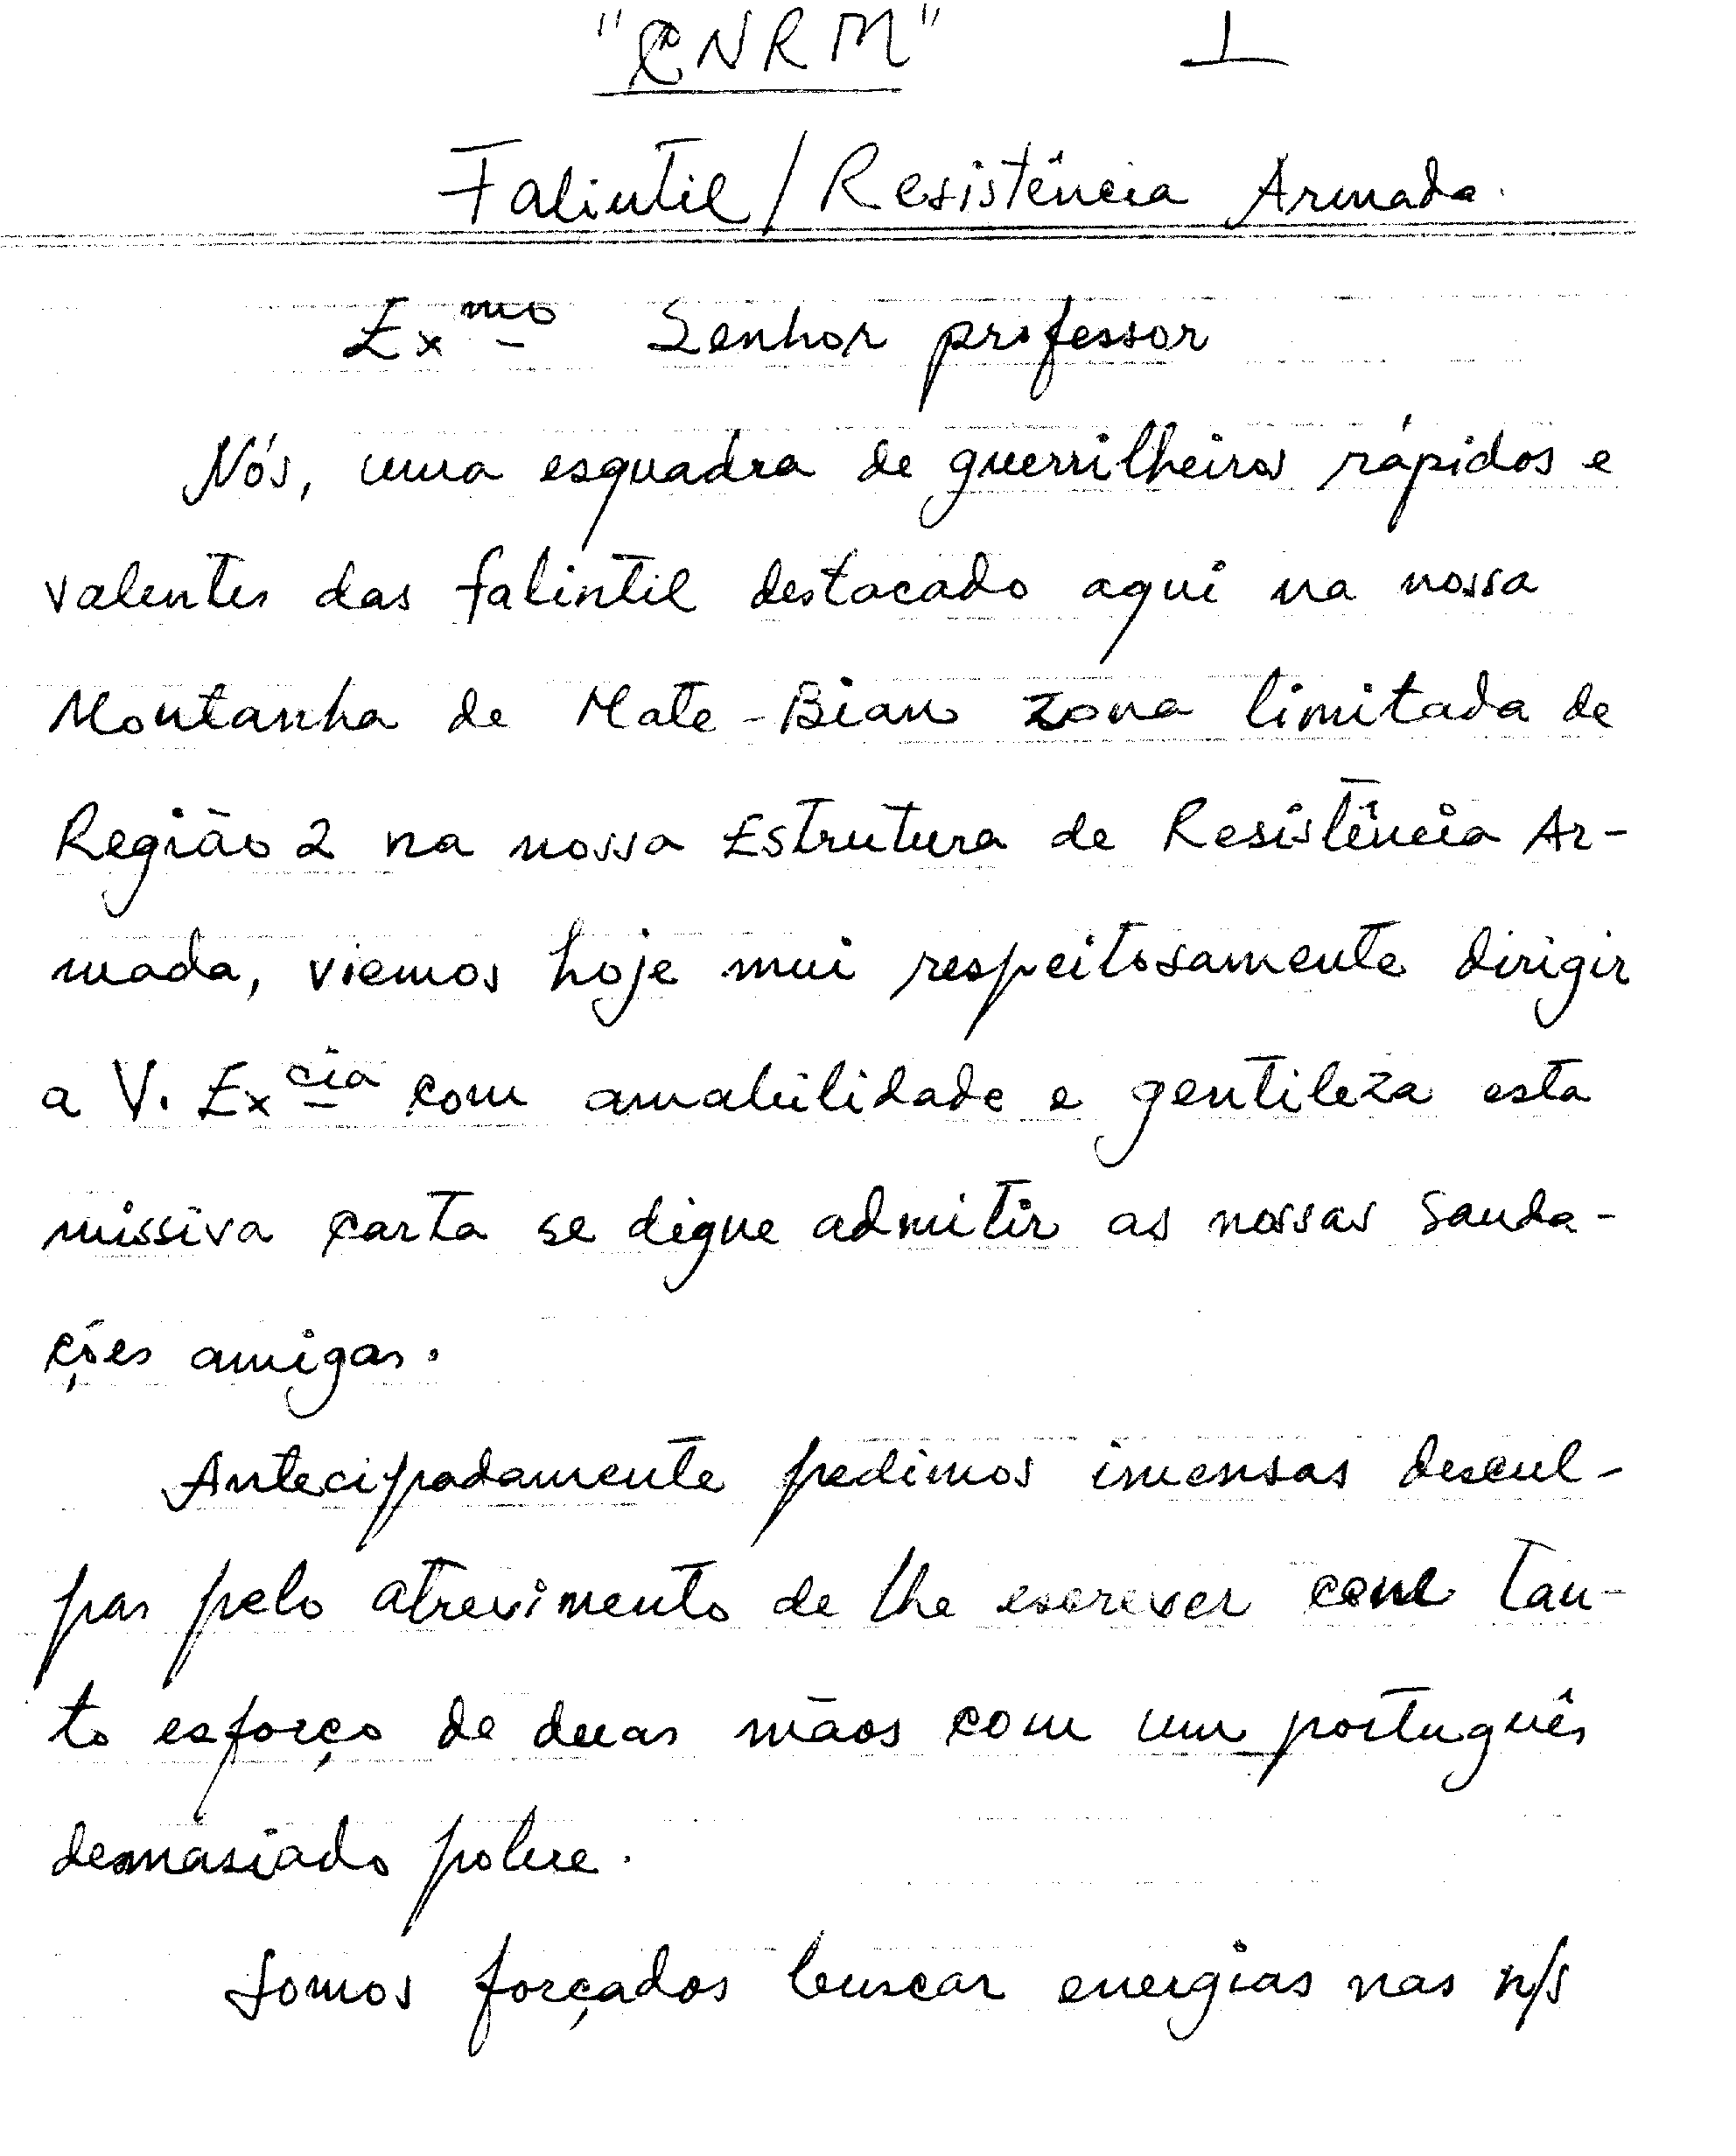 "CNRM" 1
Falintil / Resistência Armada.
Exmo Senhor professor
Nós, uma esquadra de guerrilheiros rápidos e
valentes das falintil destacado aqui na nossa
Montanha de Mate-Bian zona limitada de
Região 2 na nossa Estrutura de Resistência Ar-
mada, viemos hoje mui respeitosamente dirigir
a V. Excia com amabilidade e gentileza esta
missiva carta se digne admitir as nossas sauda-
ções amigas.
Antecipadamente pedimos imensas descul-
pas pelo atrevimento de lhe escrever com tan-
to esforço de duas mãos com um português
demasiado pobre.
Somos forçados buscar energias nas n/s